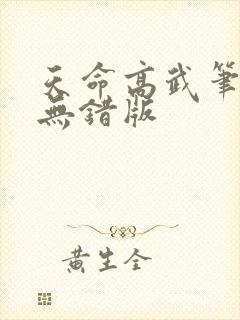 天命高武筆
無錯版
黃生全